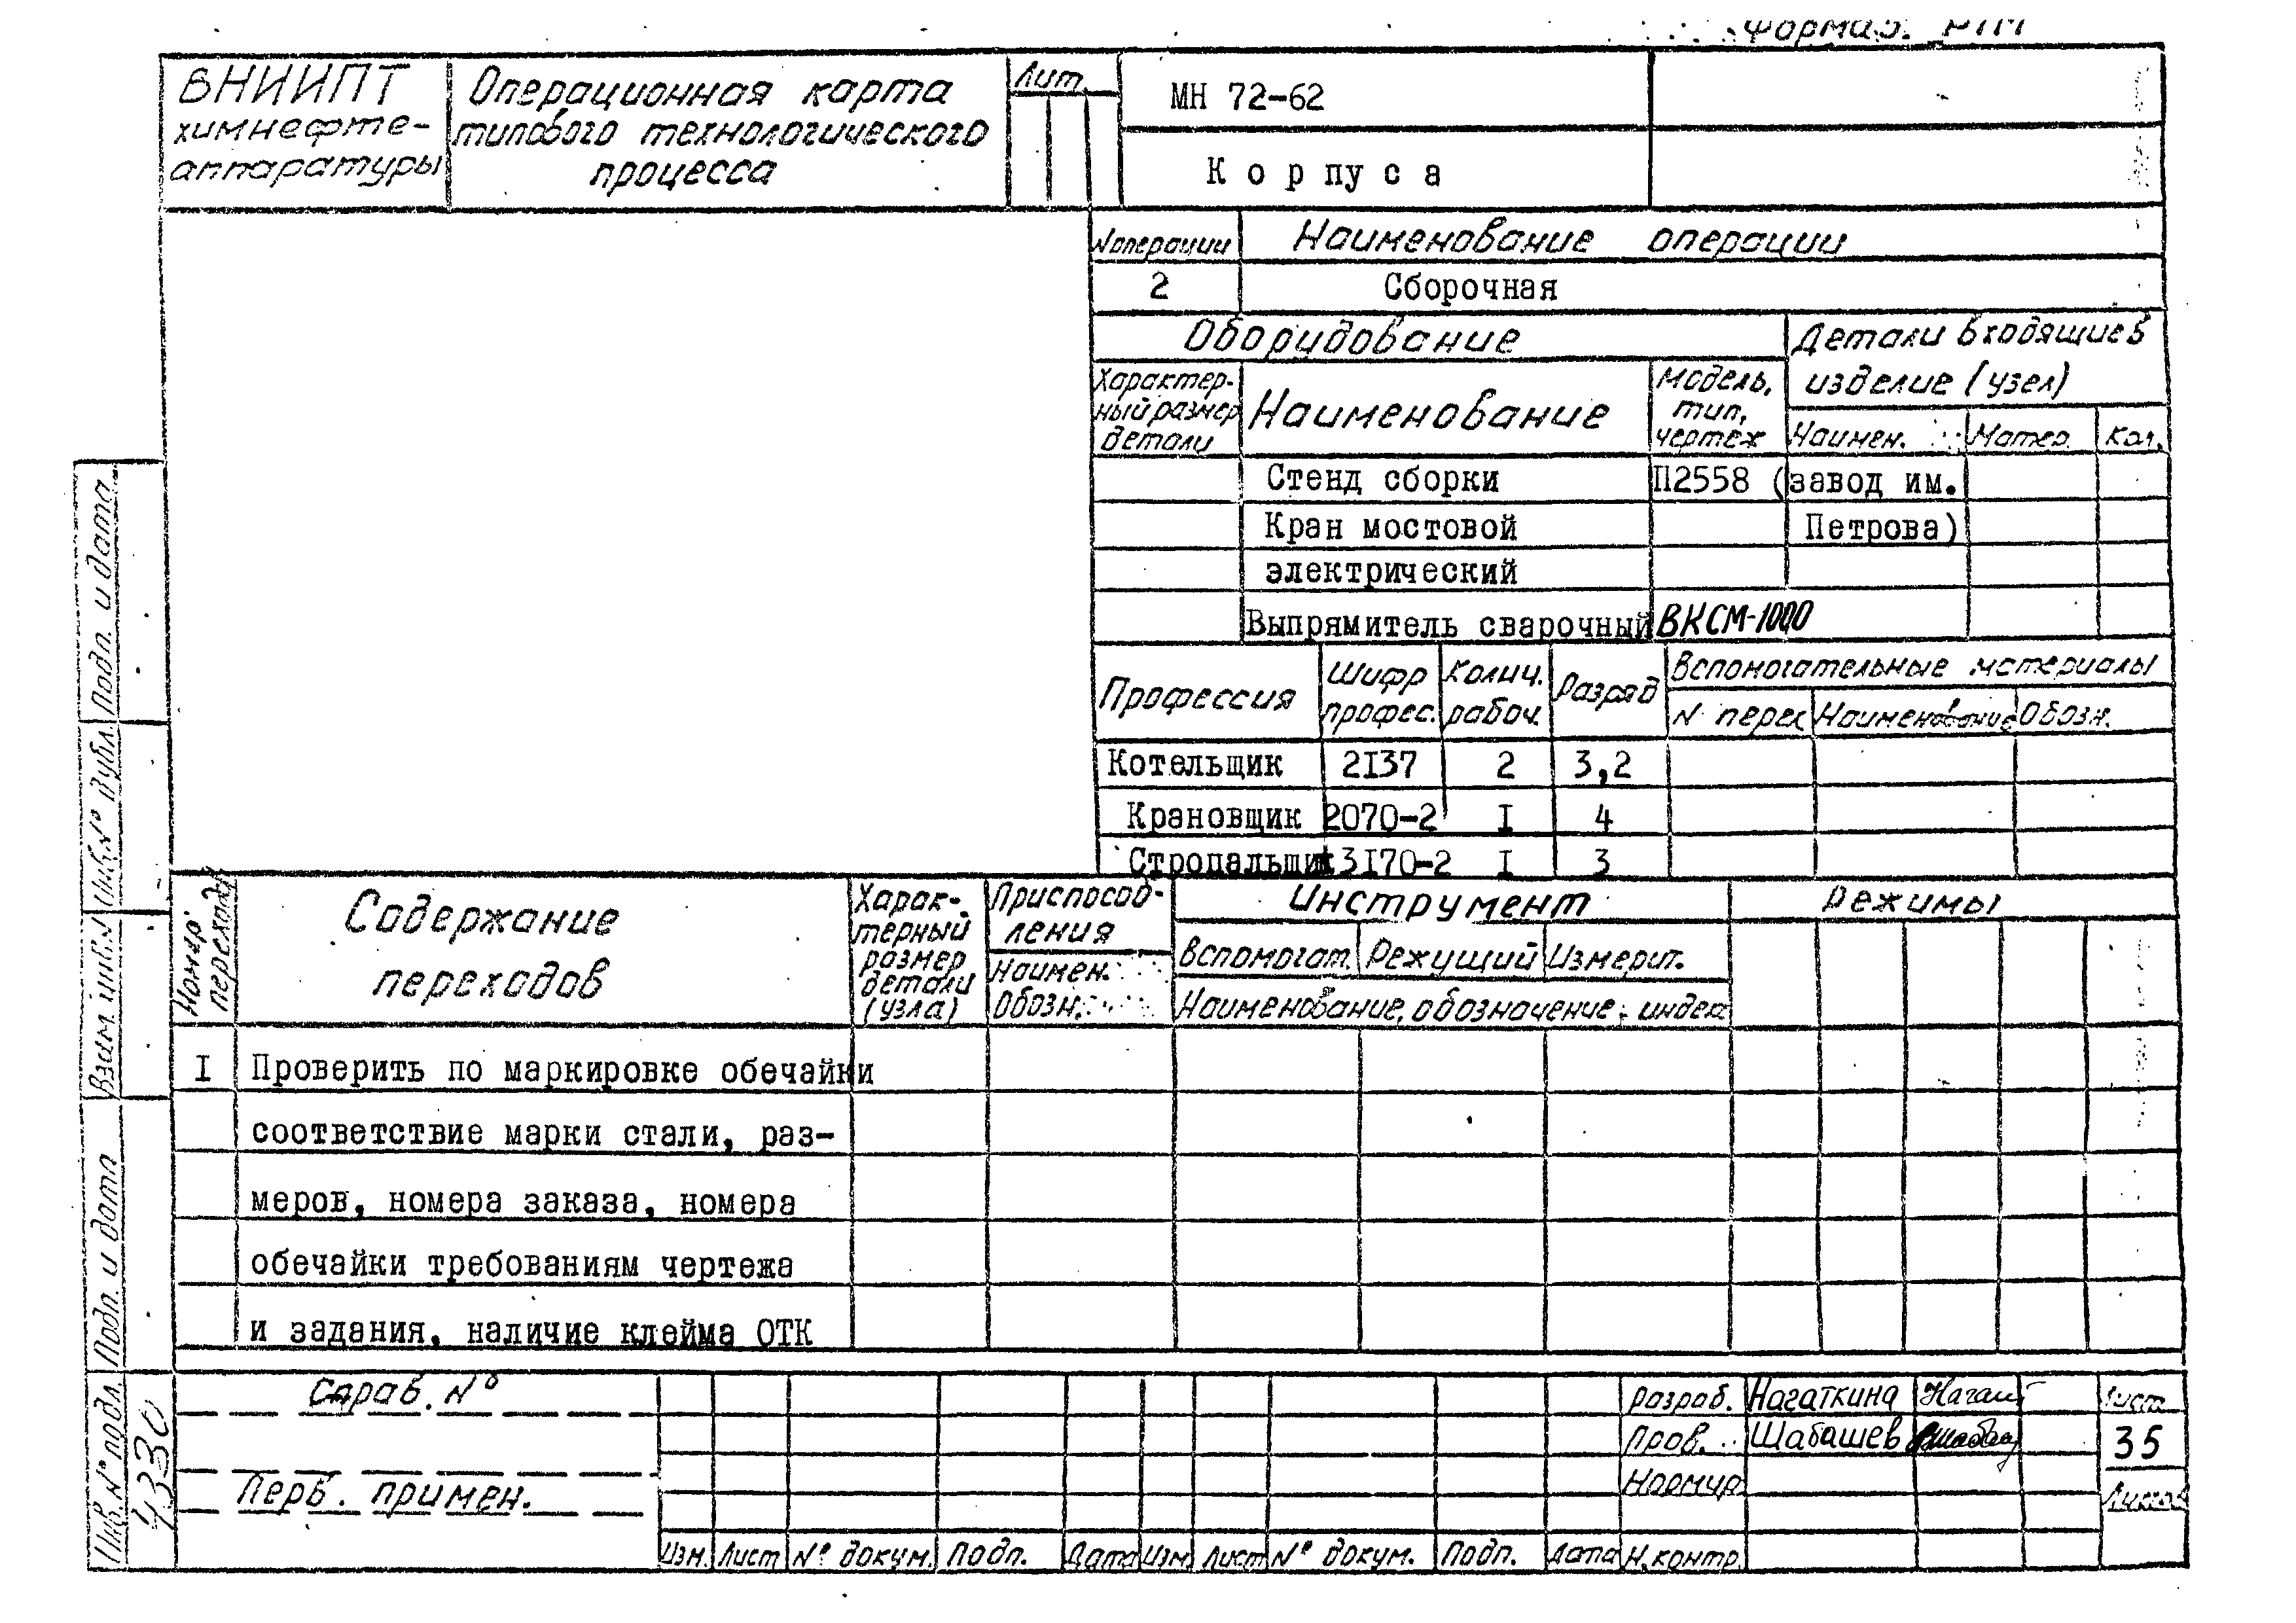 Форма 3. РТМ
ВНИИПТ
химнефте-
аппаратуры
Операционная карта
типового технологического
процесса
Лит.
МН 72-62
Корпуса
N операции Наименование операции
2 Сборочная
Оборудование
Детали входящие в
изделие (узел)
Характер-
ный размер
детали
Наименование
Модель,
тип,
чертеж
Наимен. Матер. Кол.
Стенд сборки П2558 (завод им.
Кран мостовой Петрова)
электрический
Выпрямитель сварочный ВКСМ-1000
Профессия
Шифр
профес.
Колич.
рабоч.
Разряд
Вспомогательные материалы
N перех Наименование Обозн.
Котельщик 2I37 2 3,2
Крановщик 2070-2 I 4
Стропальщик 3I70-2 I 3
Номер
перехода
Содержание
переходов
Харак-
терный
размер
детали
(узла)
Приспособ-
ления
Наимен.
Обозн.
Инструмент
Вспомогат. Режущий Измерит.
Наименование, обозначение, индекс
Режимы
I Проверить по маркировке обечайки
соответствие марки стали, раз-
меров, номера заказа, номера
обечайки требованиям чертежа
и задания, наличие клейма ОТК
Подп. и дата
Инв.N° дубл.
Взам. инв.N
Подп. и дата
Инв. N° подл.
4330
Справ. N°
Перв. примен.
Изм. Лист N° докум. Подп. Дата Изм. Лист N° докум. Подп. Дата
Разраб. Нагаткина Нагат
Пров. Шабашев
Нормир.
Н.контр.
Лист
35
Листов